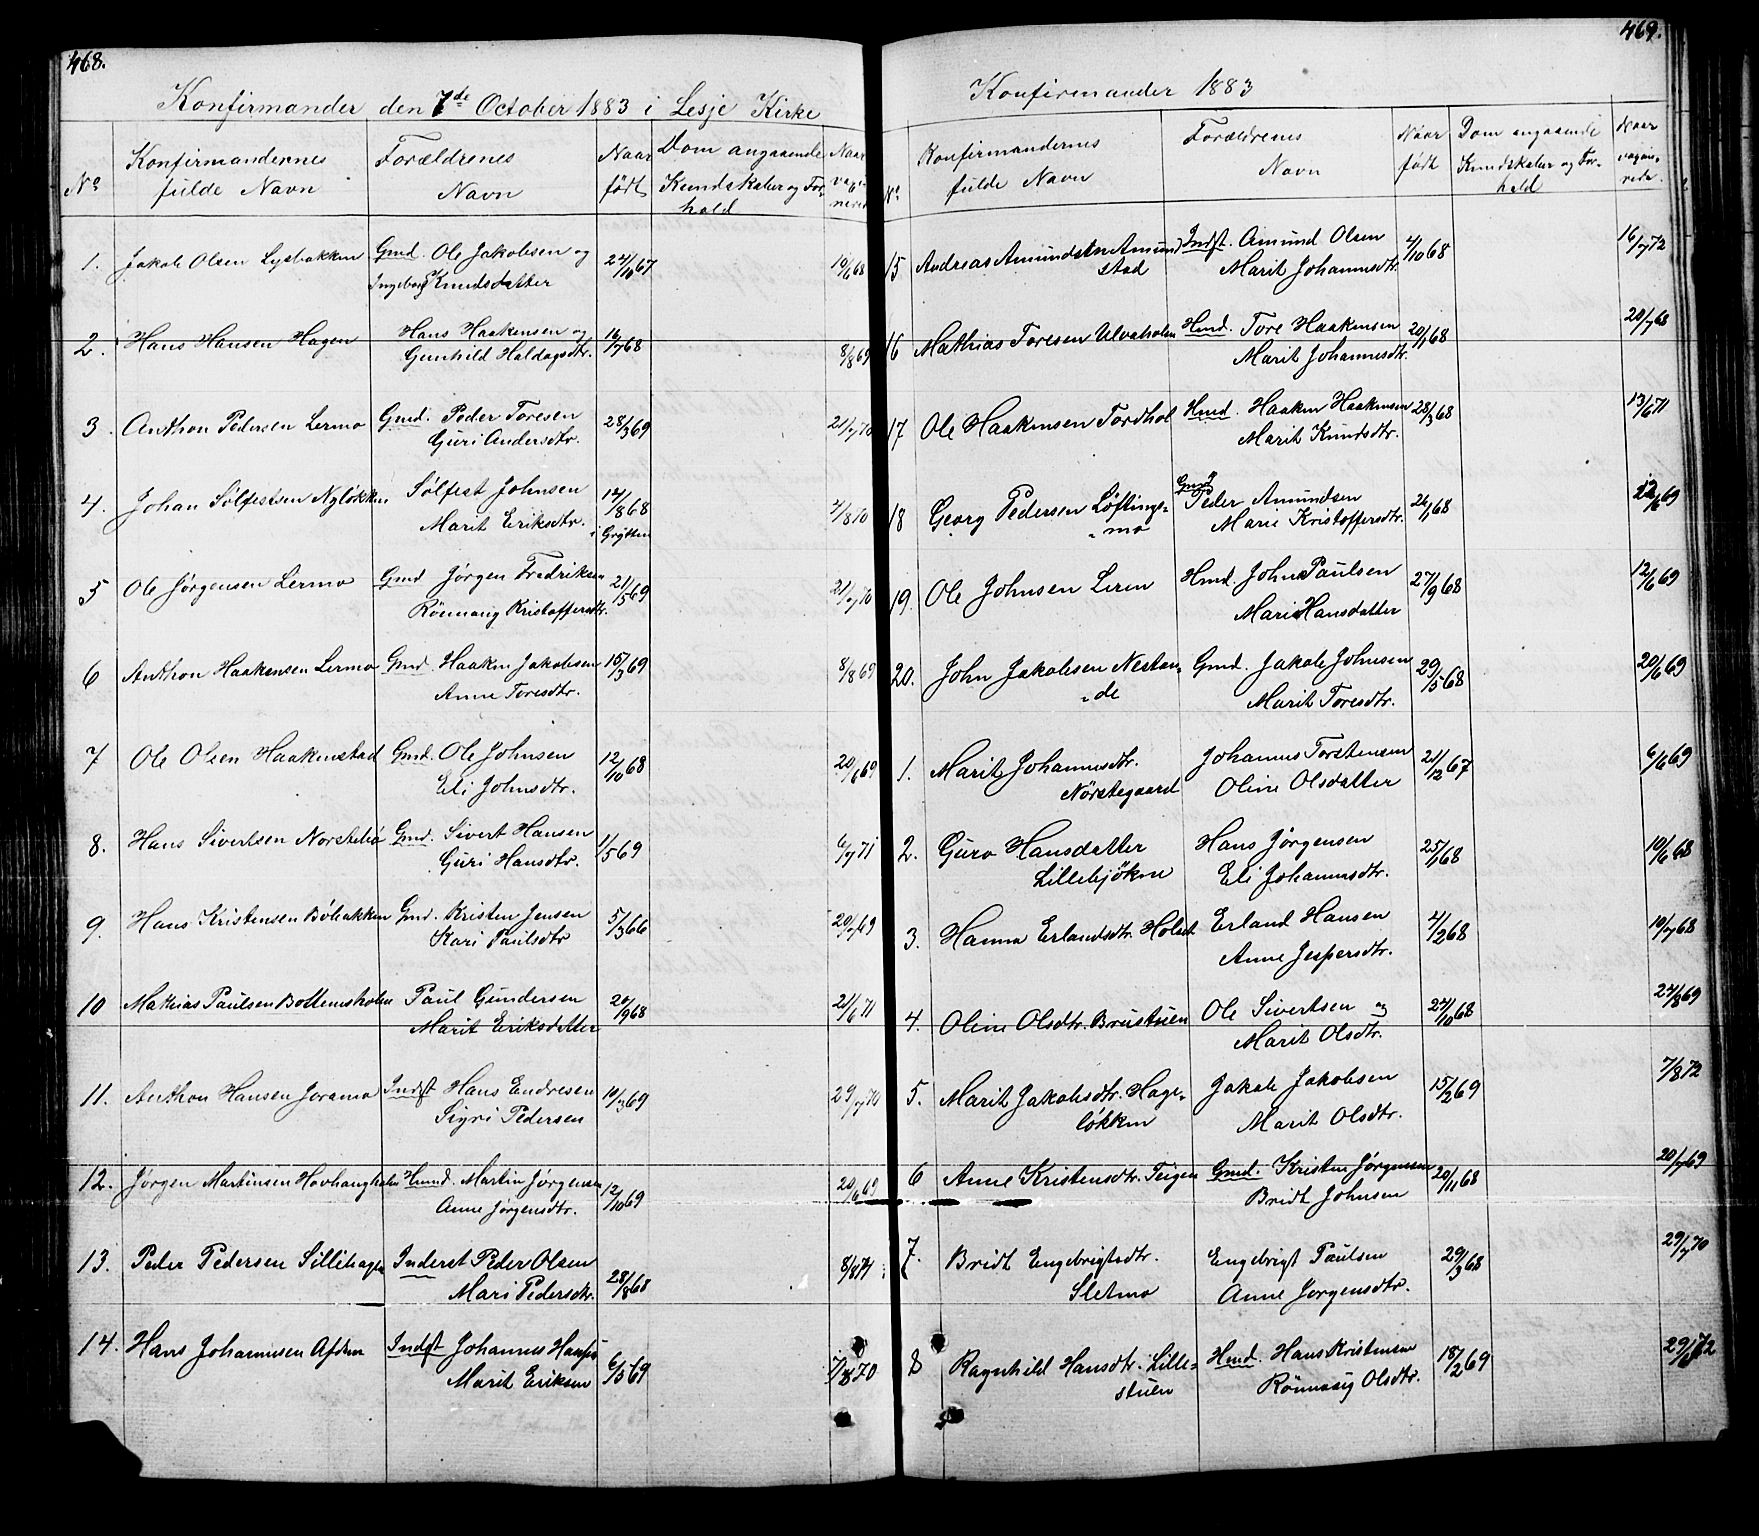 468.
Konfirmander den 7de October 1883 i Lesje Kirke
No
Konfirmandernes fulde Navn
Forældrenes Navn
Naar født
Dom angaaende Kundskaber og Forhold
Naar vaccineret
1. Jakob Olsen Lysbakken Gmd. Ole Jakobsen og 24/10 67 19/6 68
Ingeborg Knudsdatter
2. Hans Hansen Hagen Hans Haakensen og 16/7 68 8/8 69
Gunhild Haldagsdtr.
3. Anthon Pedersen Lermo Gmd. Peder Toresen 28/3 69 21/7 70
Guri Andersdtr.
4. Johan Sølfestsen Nyløkken Sølfest Johnsen 14/8 68 4/8 70
Marit Eriksdtr. i Grytten
5 Ole Jørgensen Lermo Gmd Jørgen Fredriksen 21/5 69 21/7 70
Rønnaug Kristoffersdtr.
6 Anthon Haakensen Lermo Gmd. Haaken Jakobsen 15/3 69 8/8 69
Anne Toresdtr.
7 Ole Olsen Haakenstad Gmd. Ole Johnsen 12/10 68 20/6 69
Eli Johnsdtr.
8. Hans Sivertsen Norstebø Gmd. Sivert Hansen 1/5 69 6/7 71
Guri Hansdtr.
9. Hans Kristensen Bøbakken Gmd. Kristen Jensen 5/3 66 20/7 69
Kari Paulsdtr
10 Mathias Paulsen Bottemsholen Paul Gundersen 20/9 68 21/6 71
Marit Eriksdatter
11. Anthon Hansen Joramo Indst Hans Endresen 10/3 69 29/7 70
Sigri Pedersen
12. Jørgen Martinsen Hovhangholen Hmd. Martin Jørgensen 12/10 69 20/6 69
Anne Jørgensdtr.
13. Peder Pedersen Lillehagen Inderst Peder Olsen 28/8 68 8/8 74
Mari Pedersdtr.
14. Hans Johannesen Afdem Indst Johannes Hansen 6/5 69 7/8 70
Marit Eriksen
469.
Konfirmander 1883
No
Konfirmandernes fulde Navn
Forældrenes Navn
Naar født
Dom angaaende Kundskaber og Forhold
Naar vaccinerede.
15 Andreas Amundsen Amundstad Indst. Amund Olsen 4/10 68 16/7 72
Marit Johannesdtr.
16 Mathias Toresen Ulvaholen Hmd. Tore Haakensen 20/1 68 20/7 68
Marit Johannesdtr.
17 Ole Haakensen Tordhol Hmd. Haaken Haakensen 28/3 68 13/6 71
Marit Knudsdtr.
18 Georg Pedersen Løftings= Gmd Peder Amundsen 26/1 68 12/6 69
"mo Marie Kristoffersdtr.
19. Ole Johnsen Leren Hmd. John Paulsen 27/9 68 12/6 69
Mari Hansdatter
20. John Jakobsen Nestan= Gmd. Jakob Johnsen 29/5 68 20/6 69
"de Marit Toresdtr.
1. Marit Johannesdtr. Johannes Torstensen 21/12 67 6/6 69
Nørstegaard Oline Olsdatter
2. Guro Hansdatter Hans Jørgensen 25/1 68 10/6 68
Lillebjøkne Eli Johannesdtr.
3. Hanna Erlandsdtr. Holset Erland Hansen 4/2 68 10/7 68
Anne Jespersdtr.
4. Oline Olsdtr. Brustuen Ole Sivertsen og 24/10 68 24/8 69
Marit Olsdtr.
5. Marit Jakobsdtr. Hage= Jakob Jakobsen 15/2 69 7/8 72
løkken Marit Olsdtr.
6 Anne Kristensdtr. Teigen Gmd. Kristen Jørgensen 20/11 68 20/7 69
Bridt Johnsen
7. Bridt Engebrigtsdtr. Engebrigt Paulsen 29/3 68 29/7 70
Sletmo Anne Jørgensdtr.
8 Ragnhild Hansdtr. Lille= Hmd. Hans Kristensen 18/2 69 29/6 72
stuen Rønnaug Olsdtr.